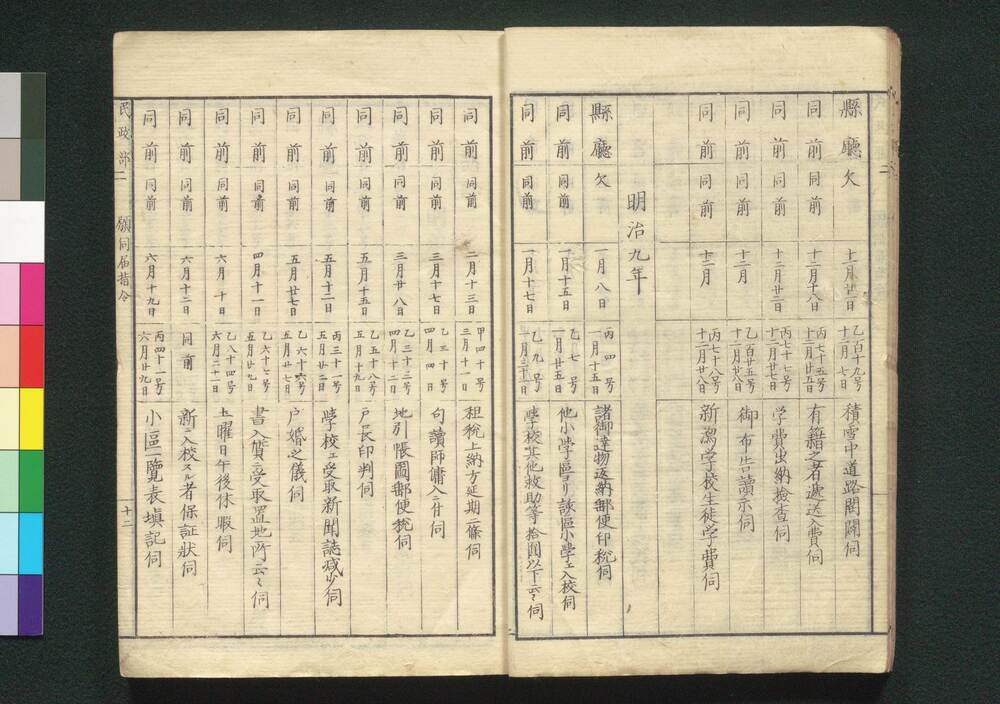 縣廳欠 十一月廿一日 乙百十九号 十二月七日 積雪中道路開闢伺
同前 同前 十二月十八日 丙七十五号 十二月廿五日 有籍之者逓送入費伺
同前 同前 十二月廿二日 丙七十七号 十二月廿七日 学費出納檢查伺
同前 同前 十二月 乙百廿五号 十二月廿八日 御布告讀示伺
同前 同前 十二月 丙七十八号 十二月廿八日 新潟学校生徒学費伺
明治九年
縣廳欠 一月八日 丙四号 一月十五日 諸御達物返納郵便印税伺
同前 同前 一月十五日 乙七号 他小学區ヨリ該區小學エ入校伺
同前 同前 一月十七日 乙九号 一月三十一日 學校其他救助等拾圓以下云々伺
同前 同前 二月十三日 甲四十号 三月十一日 租税上納方延期二條伺
同前 同前 三月十七日 乙三十号 四月四日 句讀師傭入ニ付伺
同前 同前 三月廿八日 乙三十三号 四月十二日 地引帳圖郵便税伺
同前 同前 五月十五日 乙五十八号 五月十九日 戸長印判伺
同前 同前 五月十二日 丙三十一号 五月廿二日 學校エ受取新聞誌减少伺
同前 同前 五月廿七日 乙六十六号 五月廿七日 戸婚之儀伺
同前 同前 四月十一日 乙六十七号 五月廿九日 書入質ニ受取置地所云々伺
同前 同前 六月十日 乙八十四号 六月二十一日 土曜日午後休暇伺
同前 同前 六月十二日 同前 新ニ入校スル者保証狀伺
同前 同前 六月十九日 丙四十一号 六月廿九日 小區一覽表塡記伺
民政部二 願伺届指令 十二